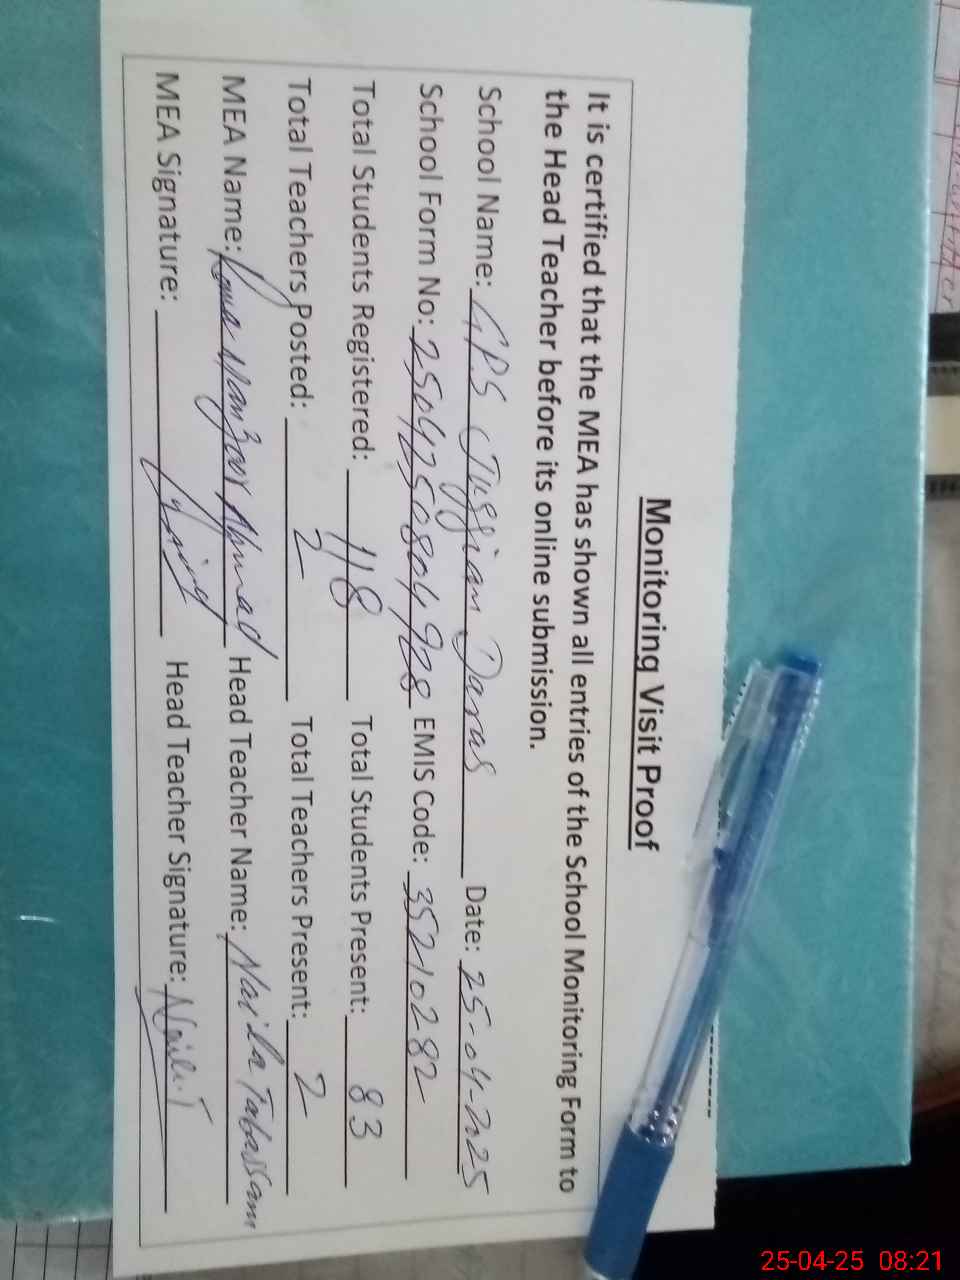 Monitoring Visit Proof
It is certified that the MEA has shown all entries of the School Monitoring Form to
the Head Teacher before its online submission.
School Name: GPS Juggian Daras Date: 25-04-2025
School Form No: 2504250804928 EMIS Code: 35210282
Total Students Registered: 118 Total Students Present: 83
Total Teachers Posted: 2 Total Teachers Present: 2
MEA Name: Rana Manzoor Ahmad Head Teacher Name: Naila Tabassam
MEA Signature: Head Teacher Signature: Naila.T
25-04-25 08:21